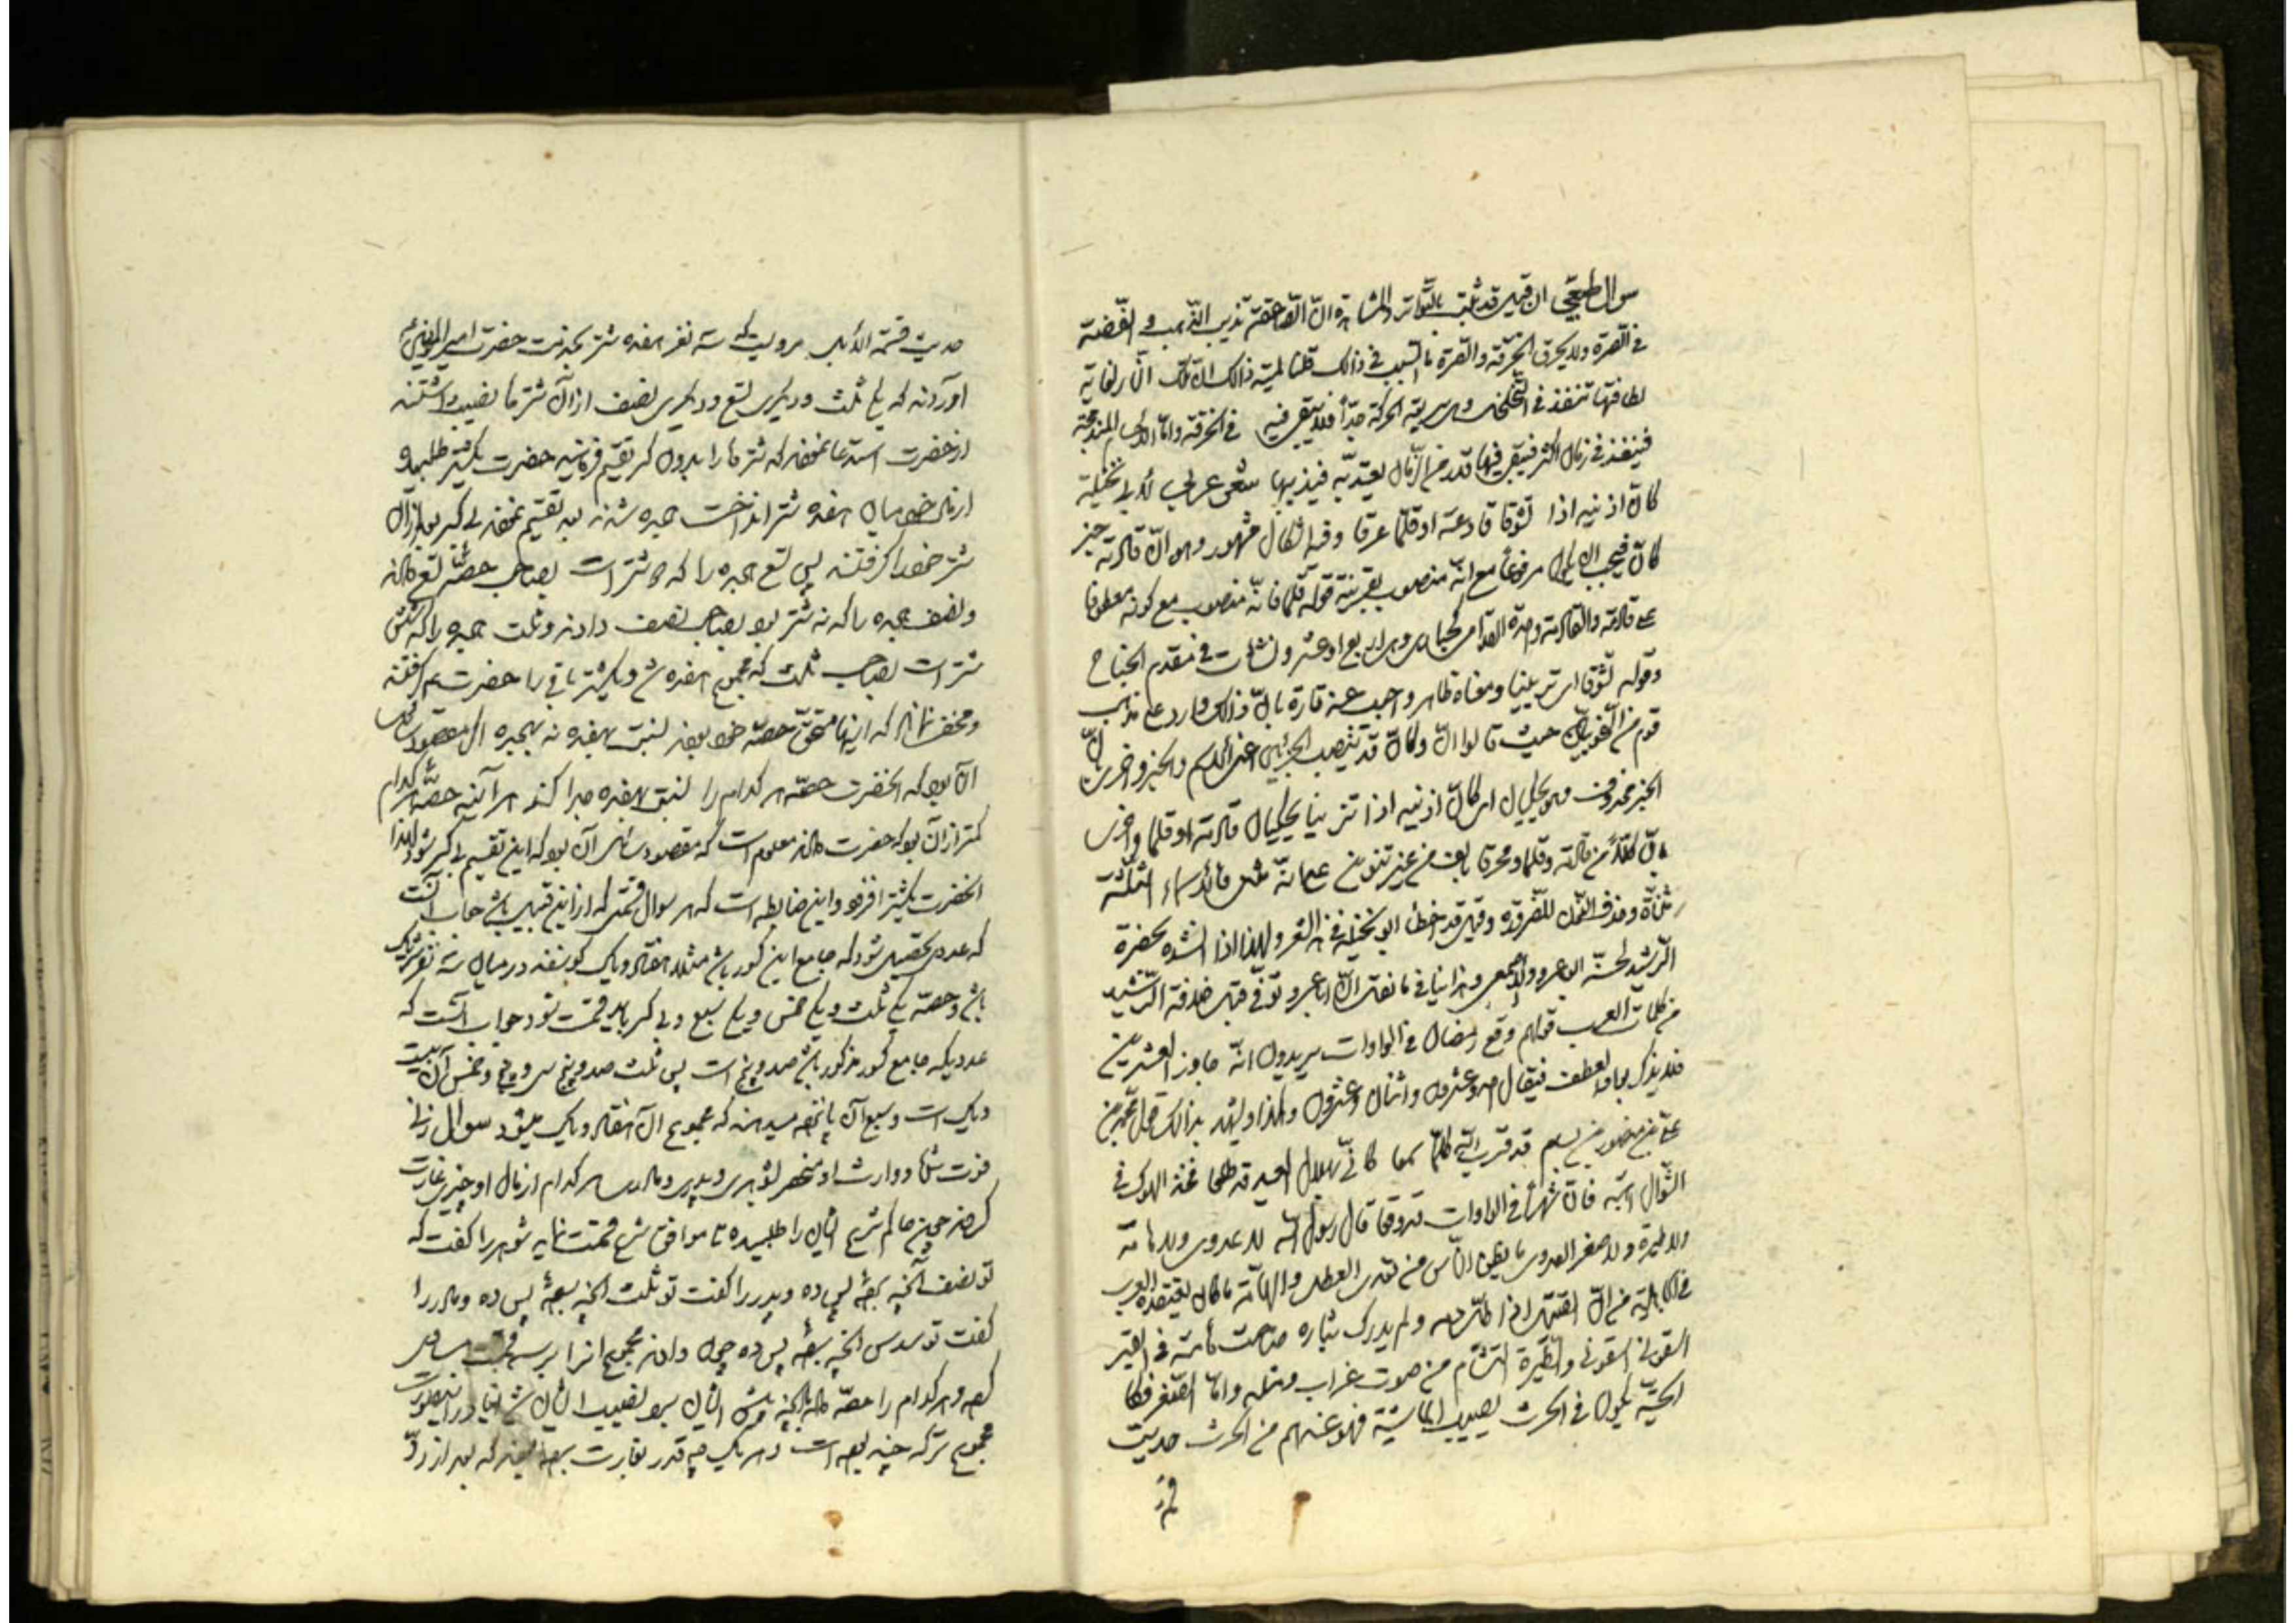 سؤال طبیعی ان قیل قد ثبت بالتواتر و المشاهدة انّ الصاعقة تذیب الذهب و الفضة
فی الصرة ولا یحرق الخرقة و الصرة ما السبب فی ذالک قلنا لمیة ذالک انّ تلک النار لغایة
لطافتها تنفذ فی التخلخل و هی سریعة الحرکة جدّاً فلا یبقی فی الخرقة و امّا الاجسام المندمجة
فینفذ فی زمان اکثر فیبقی فیها قدر من الزمان یعتدّ به فیذیبها شعر عربی لأبی نخیلة
کانّ اذنیه اذا تشوّقا قادمة او قلما محرّفا و فیه اشکال مشهور و هو انّ قادمة خبر
کانّ فیجب ان یکون مرفوعاً مع انّه منصوب بقرینة قوله قلما فانّه منصوب مع کونه معطوفا
علی قادمة و القادمة واحدة القوادم للجناح و هی اربع او عشر ونشات فی مقدم الجناح
و قوله تشوّقا ای تزیّنا و معناه ظاهر و اجیب عنه تارة بانّ ذالک وارد علی مذهب
قوم من النحویین حیث قالوا انّ و کانّ قد تنصب الجزئین اعنی الاسم و الخبر و اخری بانّ
الخبر محذوف و هو یحکیان ای کانّ اذنیه اذا تزینا یحکیان قادمة او قلما و اخری
بانّ کلاًّ من قادمة و قلما و محرفا بالف من غیر تنوین علی انّه مثنی فالأسماء الثلثة
مثنّاة و حذف النون للضرورة و قیل قد اخطأ ابو نخیلة فی هذا الشعر و لهذا اذا انشده بحضرة
الرشید لحّنه ابو عمرو و الاصمعی و هذا ینافی ما نقل انّ ابا عمرو توفّی قبل خلافة الرشید
من کلمات العرب قولهم وقع رمضان فی الواوات یریدون انّه جاوز العشرین
فلا یذکر الا بواو العطف فیقال احد و عشرون و اثنان و عشرون و هکذا و لیشهد بذالک قول محمد بن
علی بن منصور بن بسام قد قرب اللّه کلّما بعدا کانّی بهلال العید قد طلعا فخذ الهوک فی
الشوال اهبته فانّ شهرک فی الواوات قد وقعا قال رسول اللّه لا عدوی ولا هامة
ولا طیرة ولا صفر العدوی ما یظن النّاس من تعدی العلل و الهامّة ما کان یعتقده العرب
فی الجاهلیة من انّ القتیل اذا طلّ دمه و لم یدرک بثاره صاحت هامّة فی القبر
اسقونی اسقونی و الطیرة التشأم من صوت غراب و مثله و امّا الصفر فکا
الحیّة یکون فی الجوف یصیب الماشیة فهو عندهم من الجرب حدیث
حدیث قسمة الأبل مرویست که سه نفر هفده شتر بخدمت حضرت امیر المؤمنین
آوردند که یکی ثلث و دیگری تسع و دیگری نصف از آن شتر ها نصیب داشتند
از حضرت استدعا نمودند که شتر ها را بدون کسر تقسیم فرمایند حضرت یکشتر طلبیده
از مال خود میان هفده شتر انداخت هیجده شدند بعد تقسیم نمودند بی کسر بعد از آن
شتر خود را گرفتند پس تسع هیجده را که دو شتر است بصاحب حصّه تسع دادند
و نصف هیجده را که نه شتر بود بصاحب نصف دادند و ثلث هیجده را که شش
شتر است بصاحب ثلث که مجموع هفده شد و یکشتر باقی را حضرت هم گرفتند
و مخفی نماند که اینها مستحق حصّه خود بودند بنسبت بهفده نه بهیجده اگر مقصود سائل
آن بود که انحضرت حصّه هر کدام را بنسبت بهفده جدا کند هر آینه حصّه هر کدام
کمتر از آن بود که حضرت دادند معلوم است که مقصود سائل آن بود که این تقسیم بی کسر شود لهذا
انحضرت یکشتر افزود و این ضابطه است که هر سوال قسمتی که از این قبیل باشد جواب آنست
که عددی تحصیل شود که جامع این کسور باشد مثلا هفتاد و یک گوسفند در میان سه نفر شریک
باشد و حصّه یکی ثلث و یکی خمس و یکی سبع و بی کسر باید قسمت شود جواب آنست که
عددیکه جامع کسور مذکور باشد صد و پنج است پس ثلث صد و پنج سی و پنج و خمس آن بیست
و یک است و سبع آن پانزده میرسد که مجموع آن هفتاد و یک میشود سوال زنی
فوت شد و وارث او منحصر بشوهری و پدری و مادری هر کدام از مال او چیزی غارت
کردند چون حاکم شرع ایشان را طلبیده تا موافق شرع قسمت نماید شوهر را گفت که
تو نصف آنچه برده پس ده و پدر را گفت تو ثلث آنچه برده پس ده و مادر را
گفت تو سدس آنچه برده پس ده چون دادند مجموع انرا بر سه قسمت مساوی
کرد و هر کدام را حصّه داد آنچه پیش ایشان بود نصیب ایشان شد ایا در اینصورت
مجموع ترکه چند بوده است و هر یک چه قدر بغارت برده بودند که بعد از ردّ